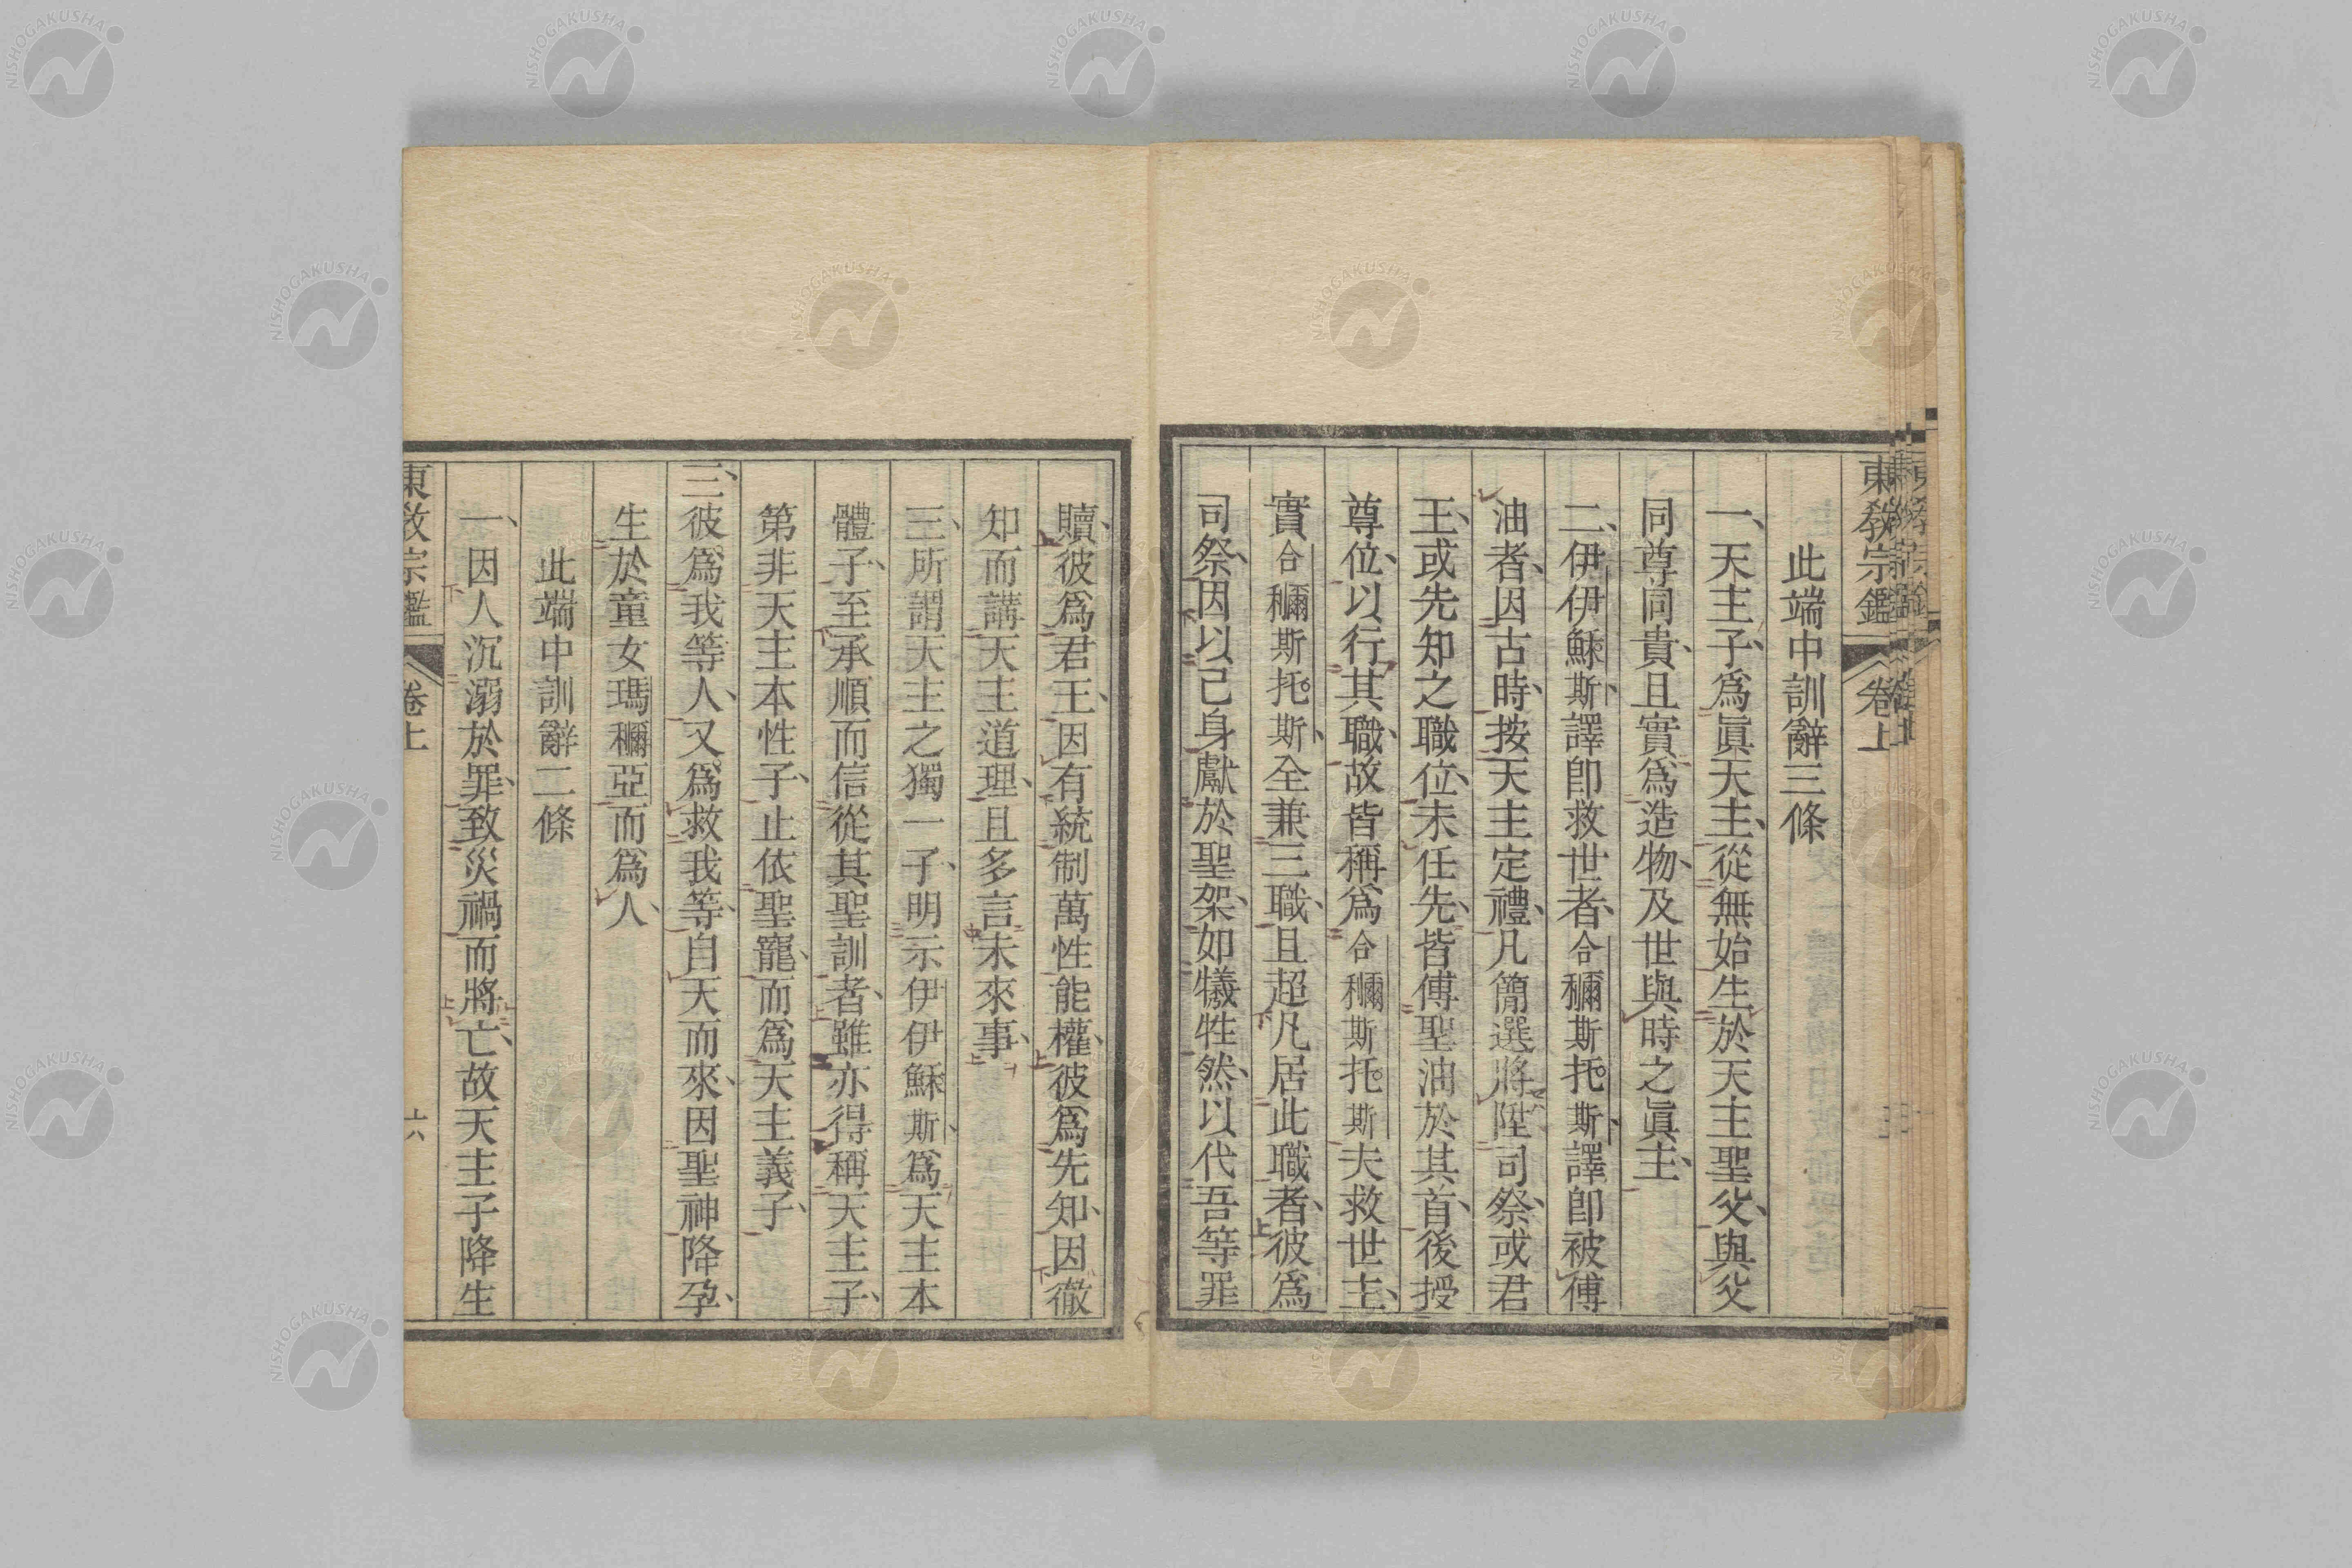 東教宗鑑 卷上
此端中訓辭三條
一、天主子、爲眞天主、從無始生於天主聖父、與父
同尊同貴、且實爲造物、及世與時之眞主、
二、伊伊穌斯、譯卽救世者、合穪斯托斯、譯卽被傅
油者、因古時、按天主定禮、凡簡選將陞司祭、或君
王、或先知之職位、未任先、皆傅聖油於其首、後授
尊位、以行其職、故皆稱爲合穪斯托斯夫救世主、
實合穪斯托斯、全兼三職、且超凡居此職者、彼爲
司祭、因以己身獻於聖架、如犧牲然、以代吾等罪
贖、彼爲君王、因有統制萬性能權、彼爲先知、因徹
知而講天主道理、且多言未來事、
三、所謂天主之獨一子、明示伊伊穌斯、爲天主本
體子、至承順而信從其聖訓者、雖亦得稱天主子、
第非天主本性子、止依聖寵、而爲天主義子、
三、彼爲我等人、又爲救我等、自天而來、因聖神降孕、
生於童女瑪穪亞而爲人、
此端中訓辭二條
一、因人沉溺於罪、致災禍而將亡、故天主子降生
東教宗鑑 卷上 六
NISHOGAKUSHA